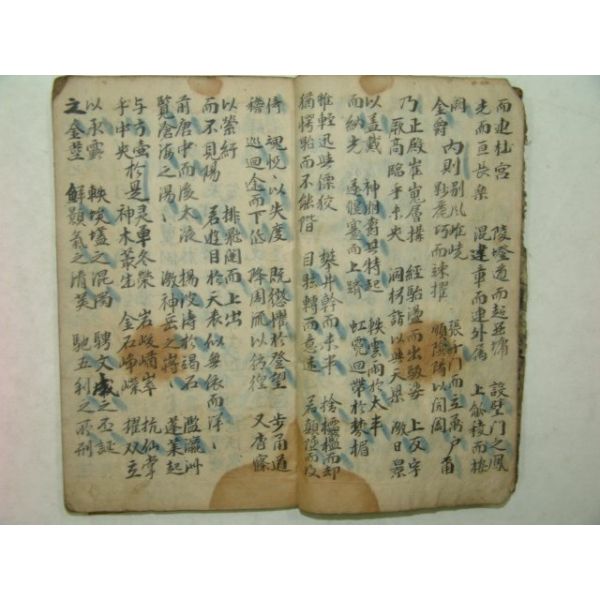 而連桂宮 陵墱道而超西墉 設璧門之鳳
光而亘長樂 混建章而連外屬 上觚稜而棲
闕 內則別風嶕嶢 張千門而立萬戶 爾
金爵 眇麗巧而竦擢 順陰陽以開闔
乃正殿崔嵬層構 經駘盪而出馺娑 上反宇
厥高臨乎未央 洞枍詣以與天梁 激日景
以盖戴 神明鬱其特起 軼雲雨於太半
而納光 遂偃蹇而上躋 虹霓回帶於棼楣
雖輕迅與僄狡 攀井幹而未半 捨櫺檻而却
猶愕眙而不能階 目眴轉而意迷 若顛墜而復
倚 魂怳怳以失度 既懲懼於登望 步甬道
稽 巡迴途而下低 降周流以彷徨 又杳窱
以縈紆 排飛闥而上出
而不見陽 若遊目於天表似無依而洋洋
前唐中而後太液 揚波濤於碣石 濫瀛洲
覽滄海之湯湯 激神岳之嶈嶈 蓬萊起
与方壺於是灵草冬榮 岩峻崷崒 抗仙掌
乎中央 神木叢生 金石崢嶸 擢双立
以承露 軼埃壒之混濁 騁文成之丕誕
之金莖 鮮顥氣之清英 馳五利之所刑